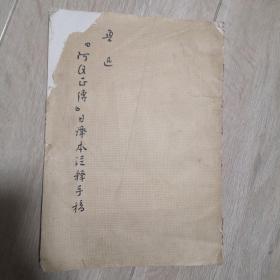 鲁迅
《阿Q正傳》日譯本注释手稿